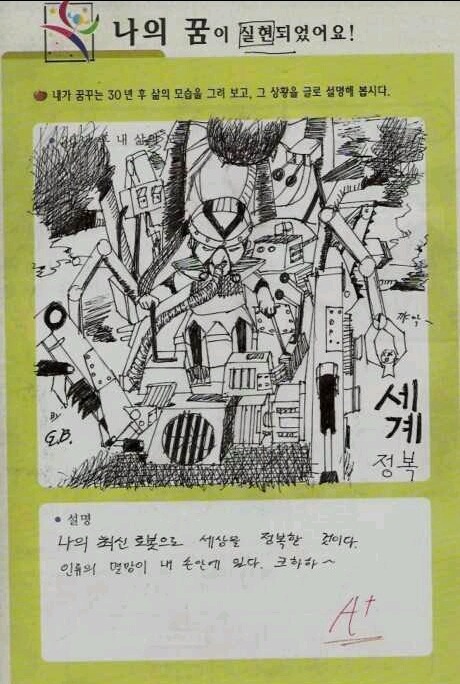 나의 꿈이 실현되었어요!
내가 꿈꾸는 30년 후 삶의 모습을 그려 보고, 그 상황을 글로 설명해 봅시다.
후 내 삶의
까악~
by
G.B.
세계
정복
설명
나의 최신 로봇으로 세상을 정복한 것이다.
인류의 멸망이 내 손안에 있다. 크하하~
A+